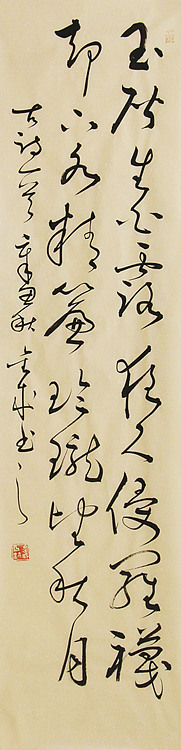 玉階生白露夜久侵羅襪
却下水精簾玲瓏望秋月
古詩一首辛丑秋書之